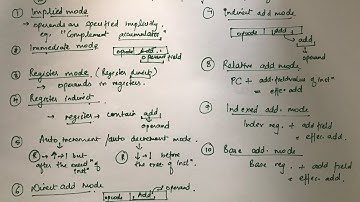 ① Implied mode
→ operands are specified implicitly
eg. "Complement accumulator"
② Immediate mode
opcode
operand field
③ Register mode (Register direct)
→ operands in registers.
④ Register indirect
→ register → contain add.
operand
⑤ Auto Increment / auto decrement mode.
R → ↑→1 but after the execⁿ of instⁿ
R → ↓→1 before the execⁿ of instⁿ
⑥ Direct add mode
opcode Add
operand
⑦ Indirect add mode
opcode add
add
operand
⑧ Relative add mode
PC + add. field value of instⁿ
= effec. add
⑨ Indexed add. mode
Index reg. + add field
= effec. add.
⑩ Base add. mode
Base reg. + add field
= effec. add.